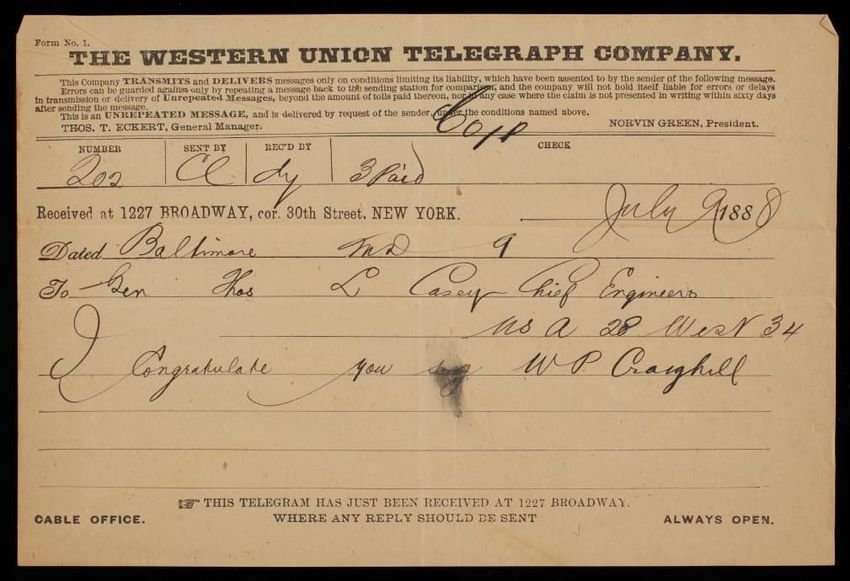 Form No. 1.
THE WESTERN UNION TELEGRAPH COMPANY.
This Company TRANSMITS and DELIVERS messages only on conditions limiting its liability, which have been assented to by the sender of the following message.
Errors can be guarded against only by repeating a message back to the sending station for comparison, and the company will not hold itself liable for errors or delays
in transmission or delivery of Unrepeated Messages, beyond the amount of tolls paid thereon, nor in any case where the claim is not presented in writing within sixty days
after sending the message.
This is an UNREPEATED MESSAGE, and is delivered by request of the sender, under the conditions named above.
THOS. T. ECKERT, General Manager. NORVIN GREEN, President.
Copy
NUMBER SENT BY REC'D BY CHECK
202 Cl dy 3 Paid
Received at 1227 BROADWAY, cor. 30th Street, NEW YORK. July 9 1888
Dated Baltimore Md 9
To Gen Thos L Casey Chief Engineers
USA 28 West 34
I Congratulate you sig W P. Craighill
☞ THIS TELEGRAM HAS JUST BEEN RECEIVED AT 1227 BROADWAY.
CABLE OFFICE. WHERE ANY REPLY SHOULD BE SENT ALWAYS OPEN.